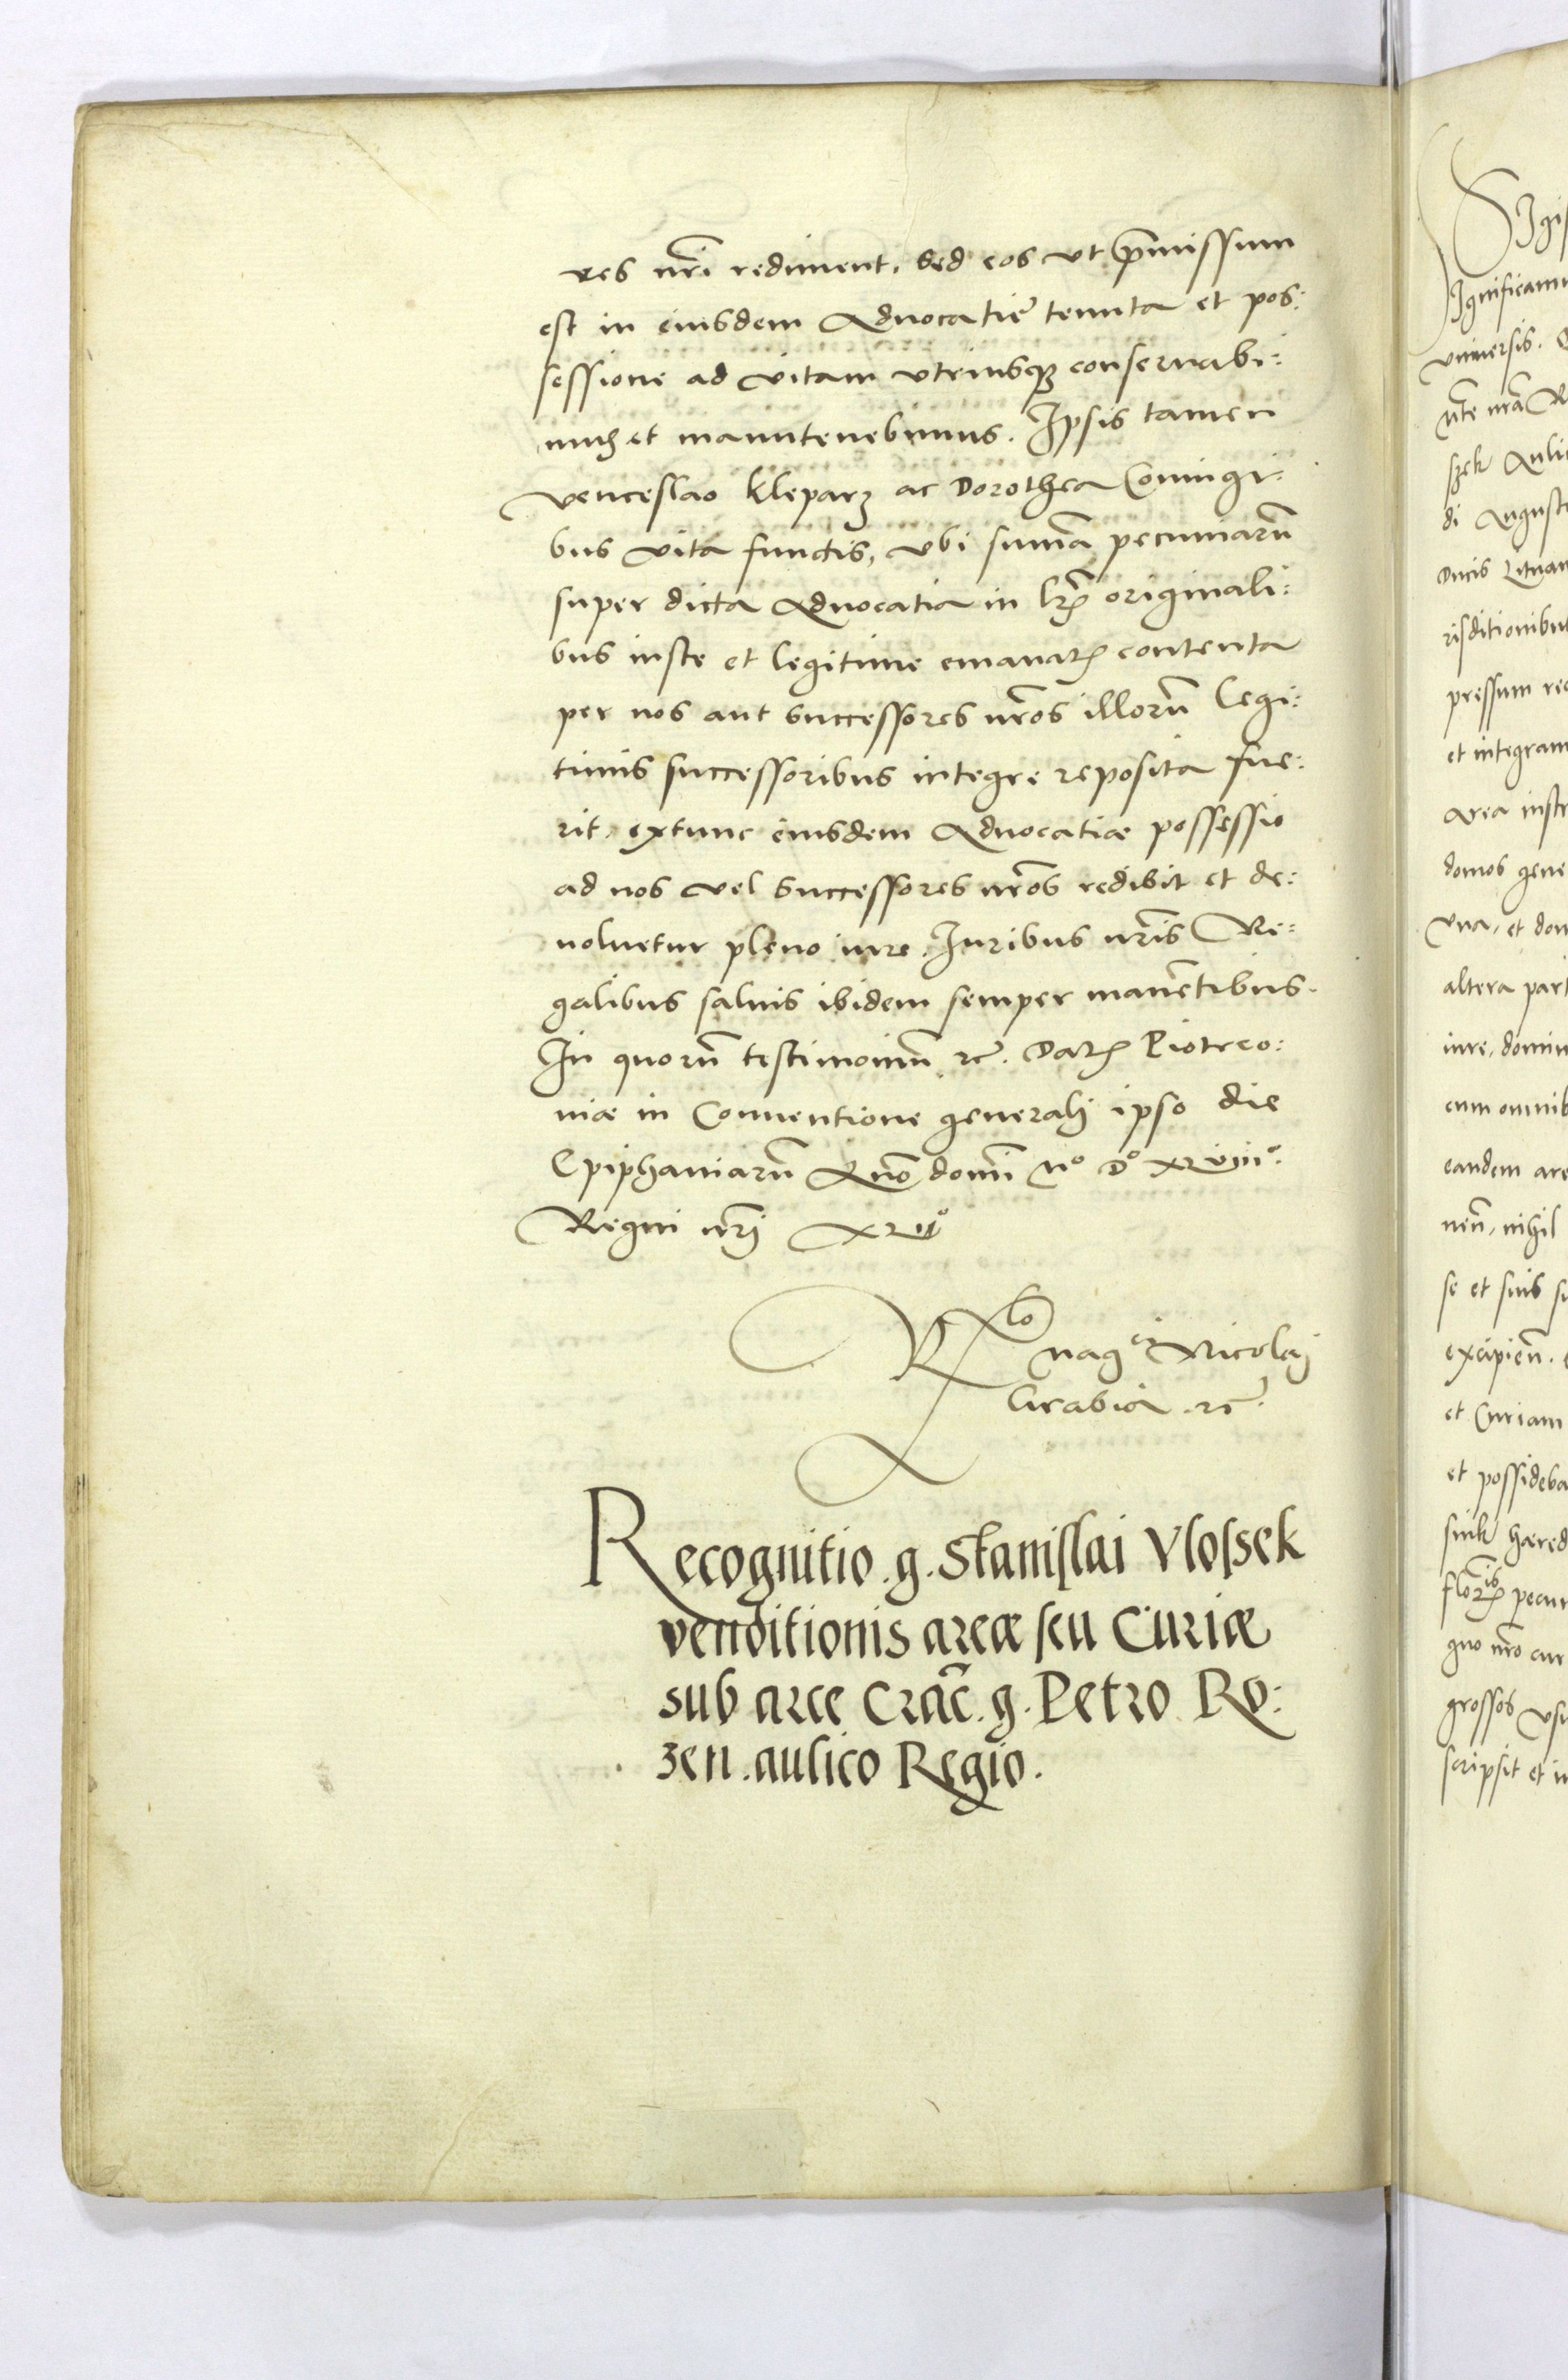 res nr̃i rediment. Sed eos vt p̃missum
est in eiusdem Aduocatie tenuta et pos:
sessione ad vitam vtriusq3 conseruabi:
mus et manutenebimus. Ipsis tamen
Venceslao Kleparz ac Dorothea Coniugi:
bus vita functis, vbi sum̃a pecuniarũ
super dicta Aduocatia in lr̃is originali:
bus iuste et legitime emanatis contenta
per nos aut Successores nr̃os illorũ legi:
timis successoribus integre reposita fue:
rit. extunc eiusdem Aduocatiæ possessio
ad nos vel Successores nr̃os redibit et de:
uoluetur pleno iure. Iuribus nr̃is Re:
galibus saluis ibidem semper manẽtibus.
In quorũ testimoniũ rc̃. Datis Piotrco:
uiæ in Conuentione generali ipso die
Epiphaniarũ Anno domĩ Mo Do xlviiio.
Regni nr̃i
Rlo
Mag ci Nicolai
Grabia rc̃.
Recognitio . g. Stanislai Vlossek
venditionis areæ seu Curiæ
sub arce Crac̃. g. Petro Ro:
zen . aulico Regio.
Sigis
Significamus
vniuersis.
nte nr̃a
szek Auli
di August
Ducis Lituan
risditionibu
pressum rec
et integram
area
domos gene
vna, et dom
altera part
iure, domin
cum omnib
eandem are
neñ, nihil
se et suis su
excipieñ.
et Curiam
et possideba
hæred
pecun
quo nr̃o cur
grossos vsu
scripsit et in